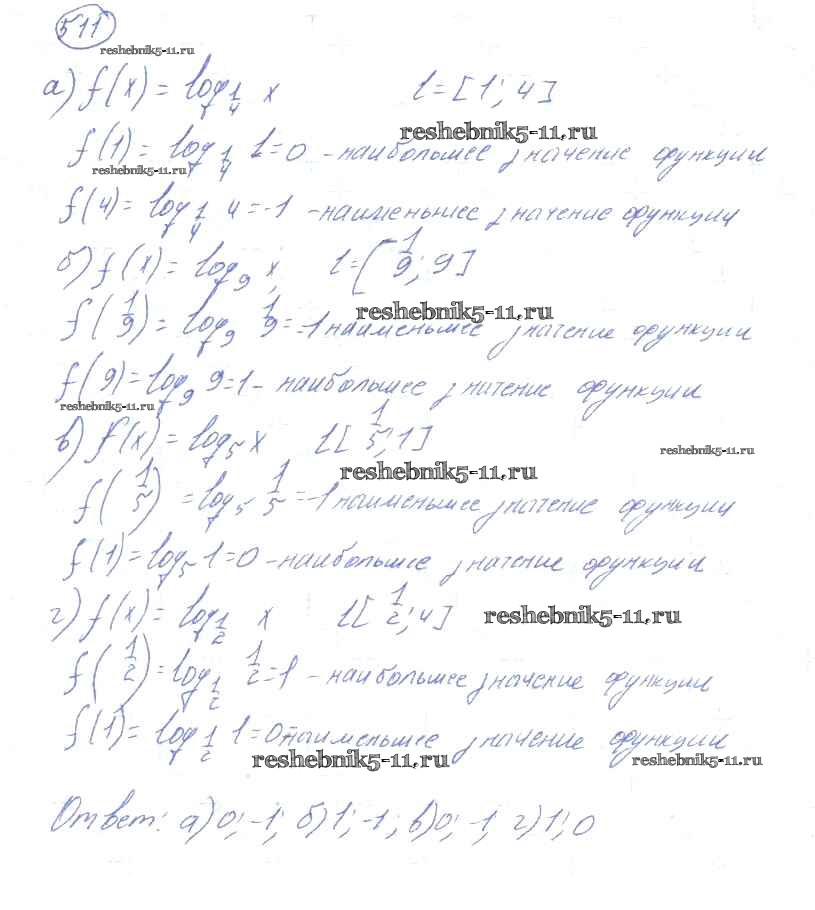 511
reshebnik5-11.ru
а) f(x) = log_{1/4} x l = [1; 4]
reshebnik5-11.ru
f(1) = log_{1/4} 1 = 0 - наибольшее значение функции
reshebnik5-11.ru
f(4) = log_{1/4} 4 = -1 - наименьшее значение функции
б) f(x) = log_9 x, l = [1/9; 9]
reshebnik5-11.ru
f(1/9) = log_9 1/9 = -1 наименьшее значение функции
f(9) = log_9 9 = 1 - наибольшее значение функции
reshebnik5-11.ru
в) f(x) = log_5 x l [1/5; 1]
reshebnik5-11.ru
reshebnik5-11.ru
f(1/5) = log_5 1/5 = -1 наименьшее значение функции
f(1) = log_5 1 = 0 - наибольшее значение функции
г) f(x) = log_{1/2} x l [1/2; 4]
reshebnik5-11.ru
f(1/2) = log_{1/2} 1/2 = 1 - наибольшее значение функции
f(1) = log_{1/2} 1 = 0 - наименьшее значение функции
reshebnik5-11.ru
reshebnik5-11.ru
Ответ: а) 0; -1; б) 1; -1; в) 0; -1; г) 1; 0